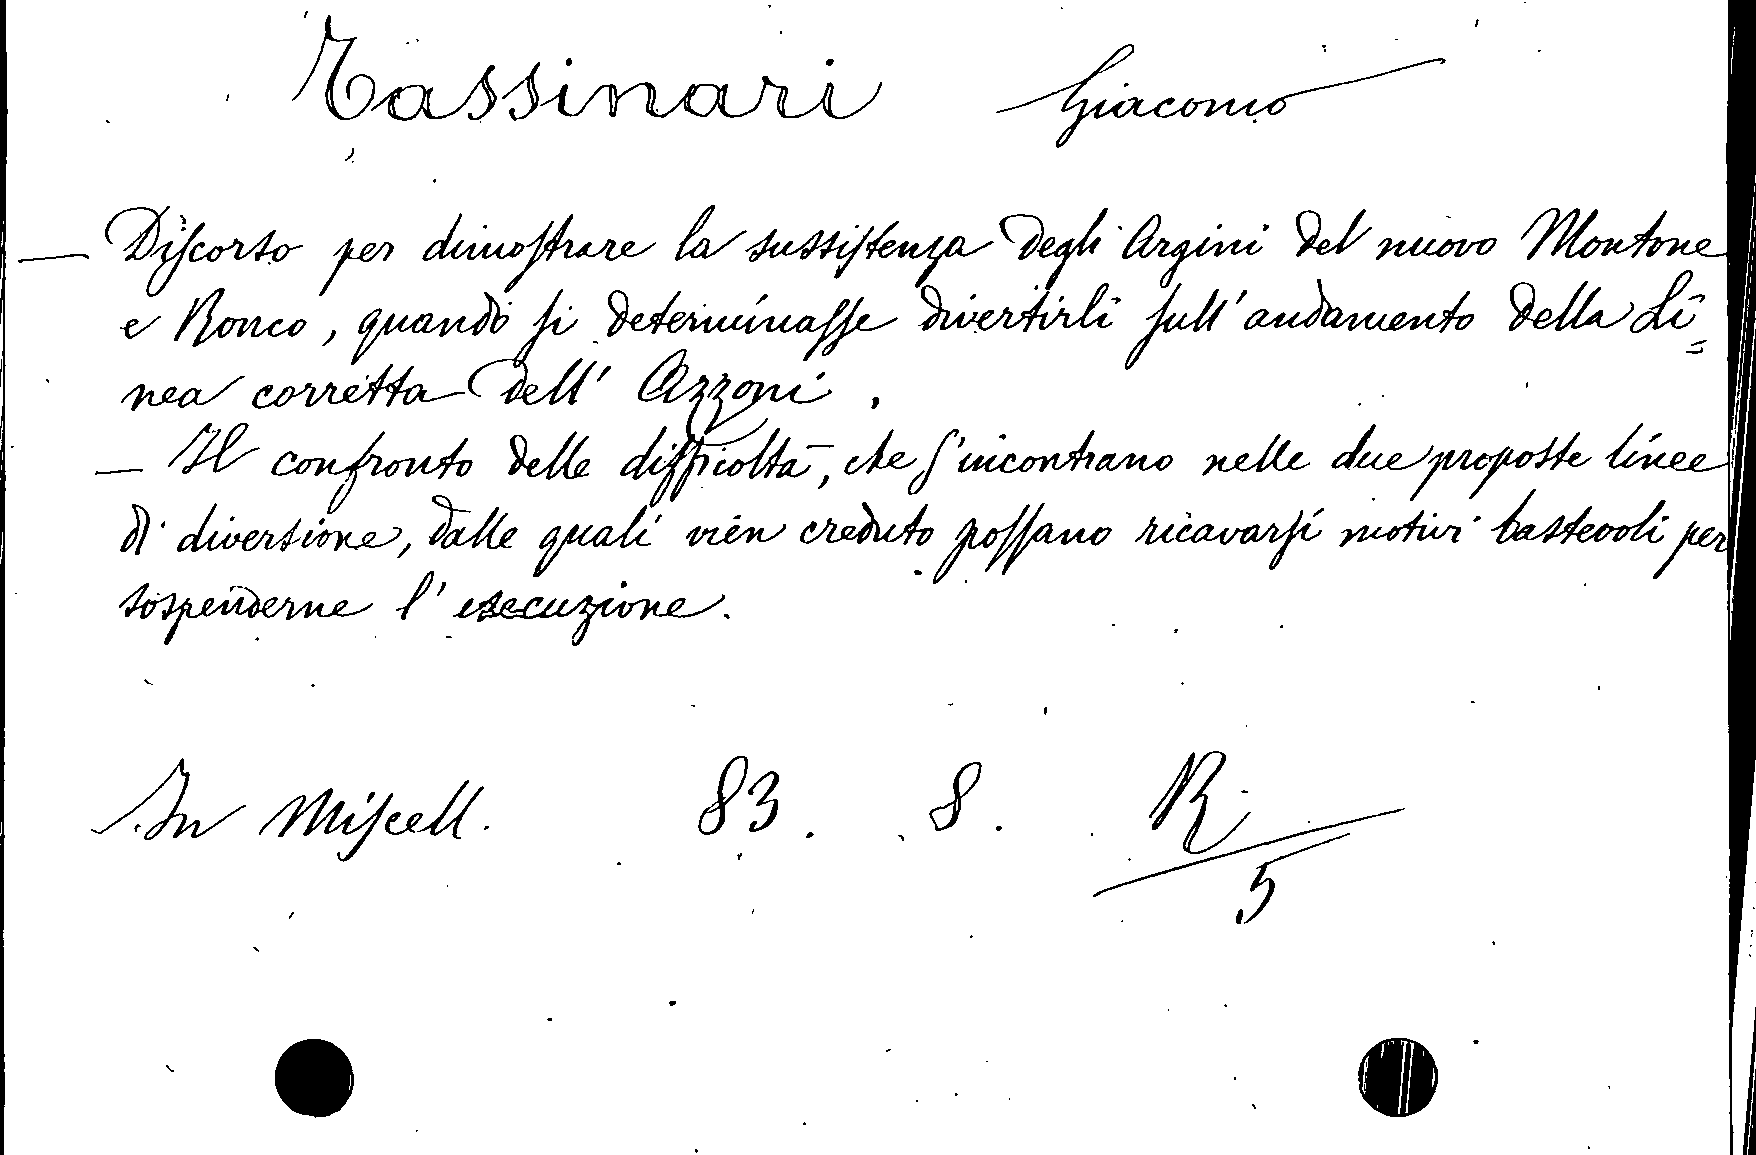 Tassinari Giacomo
— Discorso per dimostrare la sussistenza degli Argini del nuovo Montone
e Ronco, quando si determinasse divertirli sull'andamento della Li=
nea corretta dell'Azzoni.
— Il confronto delle difficoltà, che s'incontrano nelle due proposte linee
di diversione, dalle quali vien creduto possano ricavarsi motivi bastevoli per
sospenderne l'esecuzione.
In Miscell. 83. 8. R/5